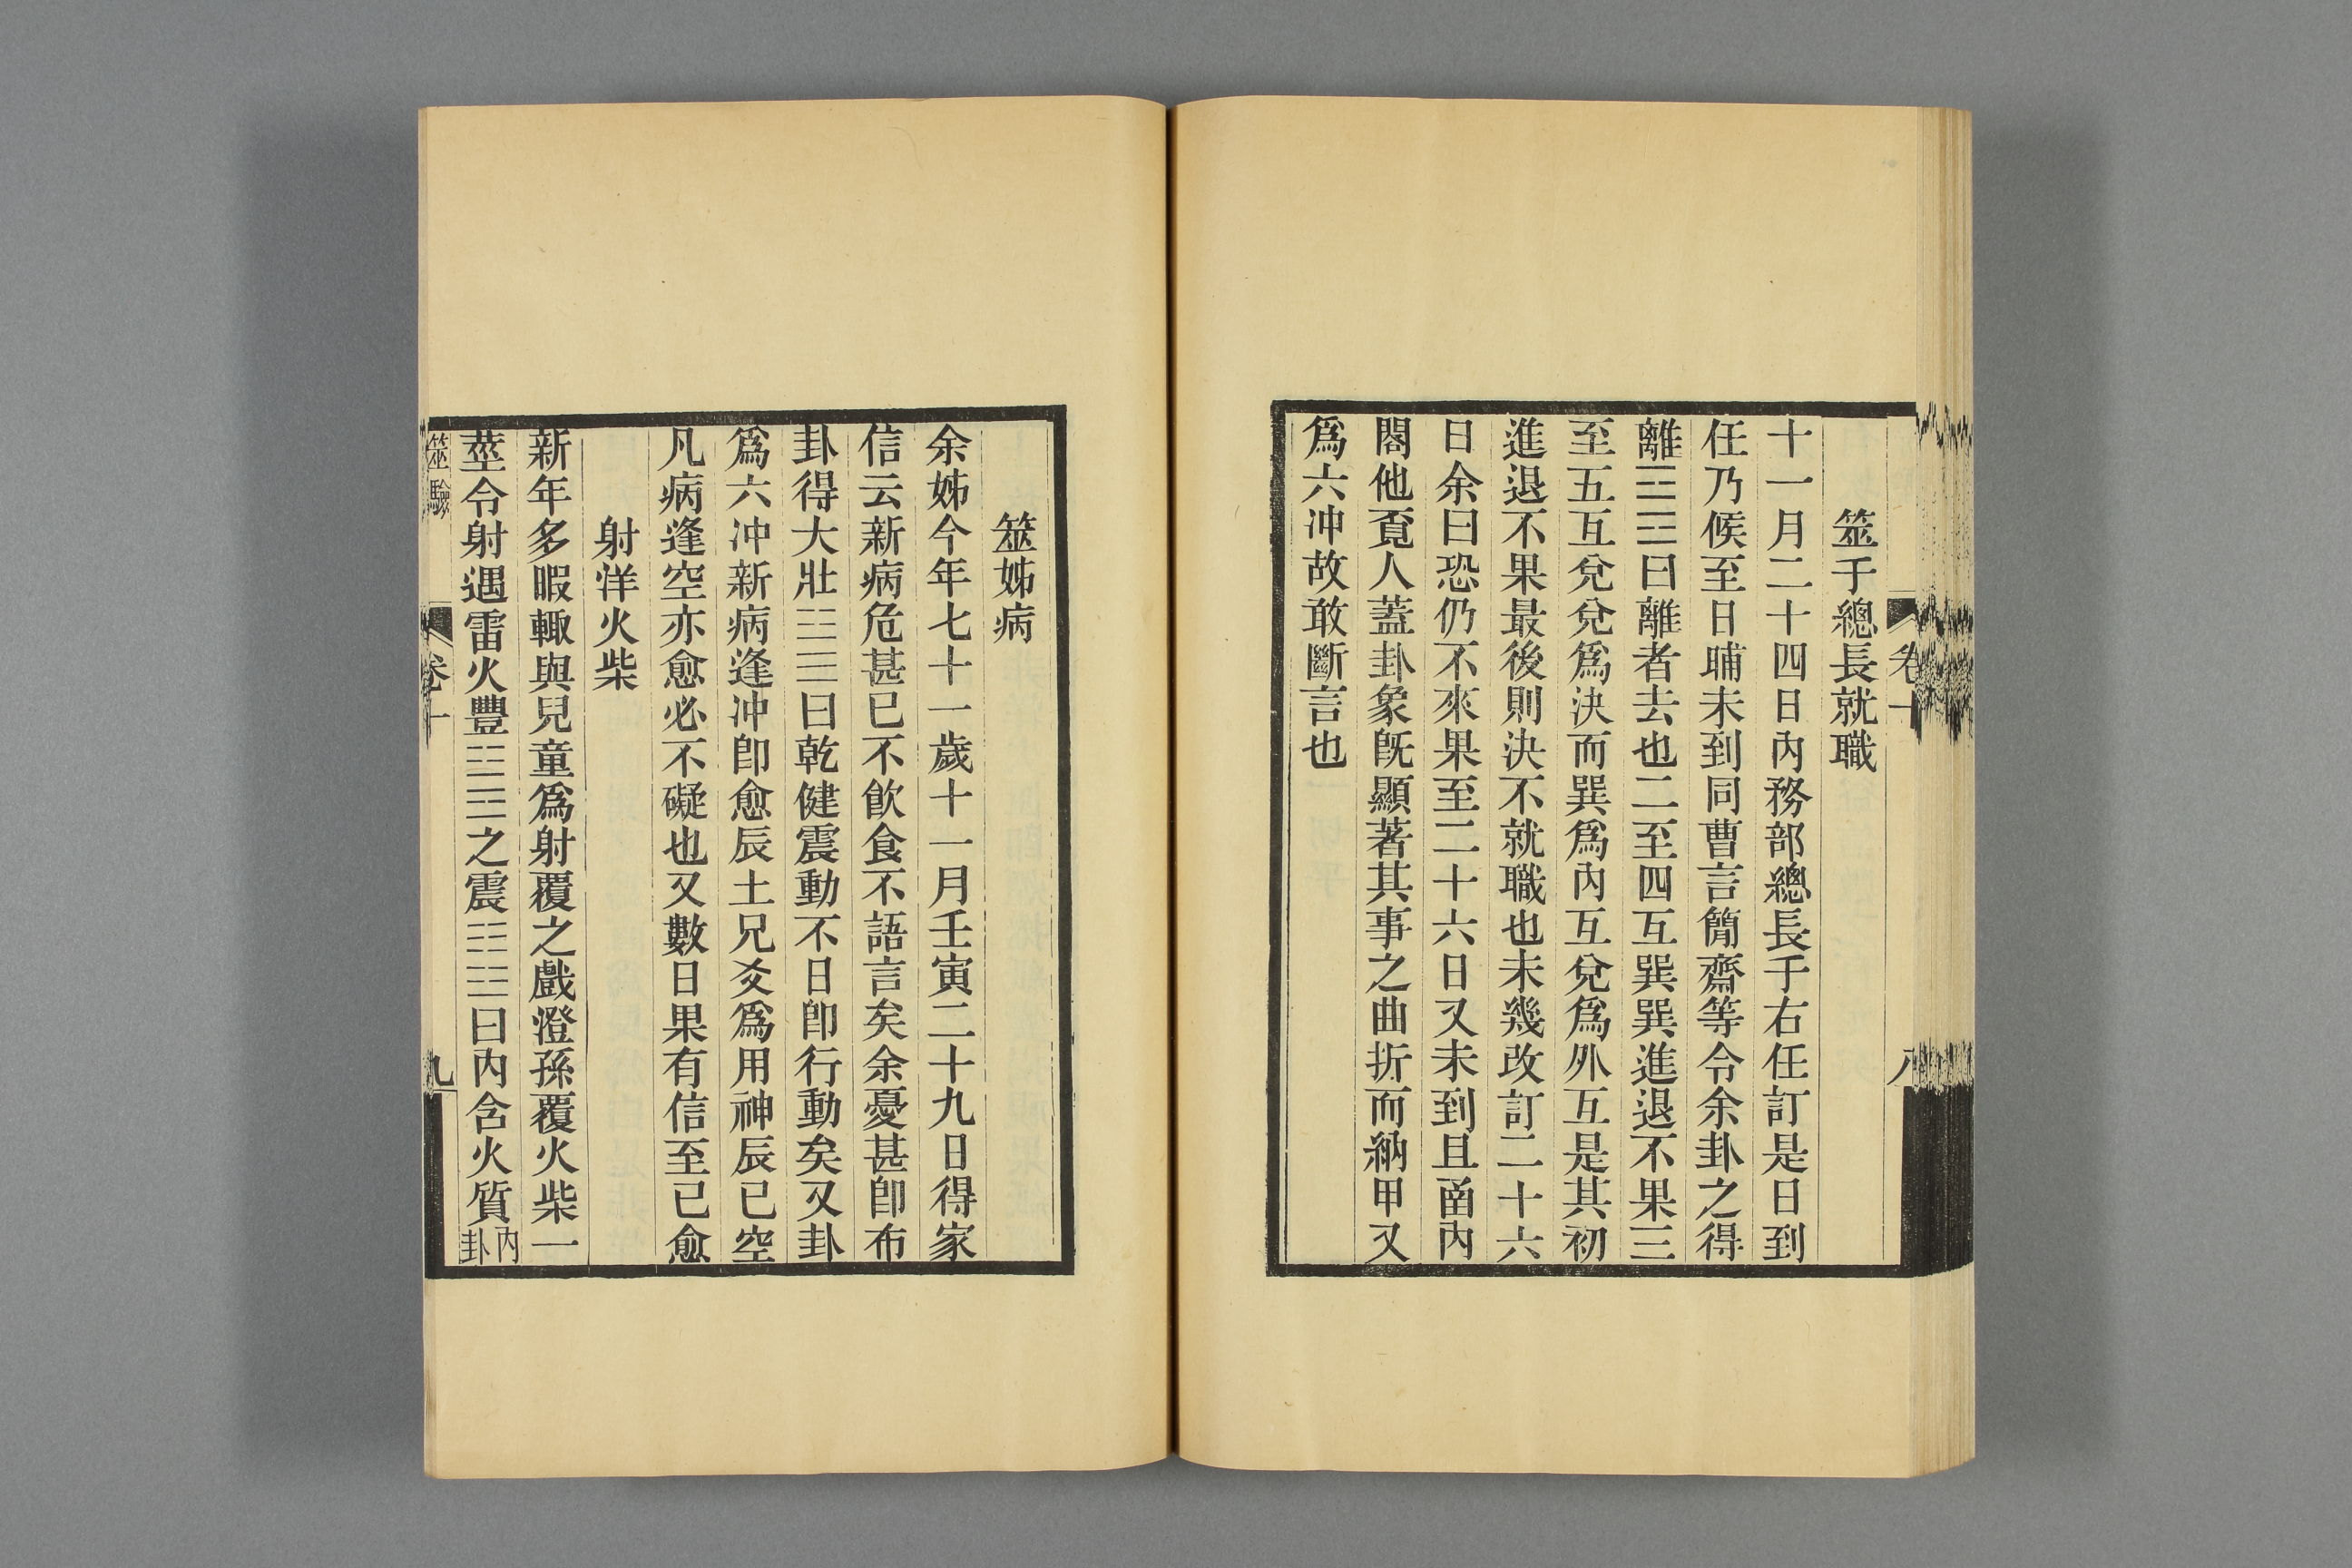 筮于總長就職
十一月二十四日內務部總長于右任訂是日到
任乃候至日晡未到同曹言簡齋等令余卦之得
離☲☲曰離者去也二至四互巽巽進退不果三
至五互兌兌爲決而巽爲內互兌爲外互是其初
進退不果最後則決不就職也未幾改訂二十六
日余曰恐仍不來果至二十六日又未到且畱內
閣他覔人蓋卦象旣顯著其事之曲折而納甲又
爲六冲故敢斷言也
卷十
八
筮姊病
余姊今年七十一歲十一月壬寅二十九日得家
信云新病危甚已不飮食不語言矣余憂甚卽布
卦得大壯☳☰曰乾健震動不日卽行動矣又卦
爲六冲新病逢冲卽愈辰土兄爻爲用神辰巳空
凡病逢空亦愈必不礙也又數日果有信至已愈
射洋火柴
新年多暇輙與兒童爲射覆之戲澄孫覆火柴一
莖令射遇雷火豐☳☲之震☳☳曰內含火質內卦
筮驗
卷十
九